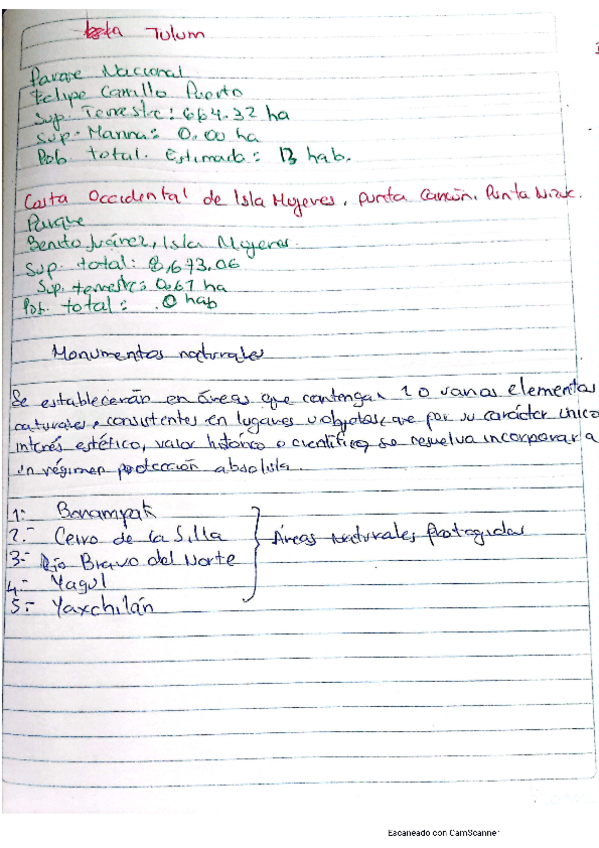 Tulum
Parque Nacional
Felipe Carrillo Puerto
Sup. Terrestre: 664.32 ha
Sup. Marina: 0.00 ha
Pob total. Estimada: 13 hab.
Costa Occidental de Isla Mujeres, Punta Cancún, Punta Nizuc.
Parque
Benito Juárez, Isla Mujeres.
Sup. total: 8,673.06
Sup. terrestre: 0.67 ha
Pob. total: .0 hab
Monumentos naturales
Se establecerán en áreas que contengan 1 o varios elementos
naturales, consistentes en lugares u objetos, que por su carácter único
interés estético, valor histórico o científico, se resuelva incorporar a
un régimen protección absoluta.
1.- Bonampak
2.- Cerro de la Silla
3.- Río Bravo del Norte
Áreas Naturales Protegidas
4.- Yagul
5.- Yaxchilán
Escaneado con CamScanner